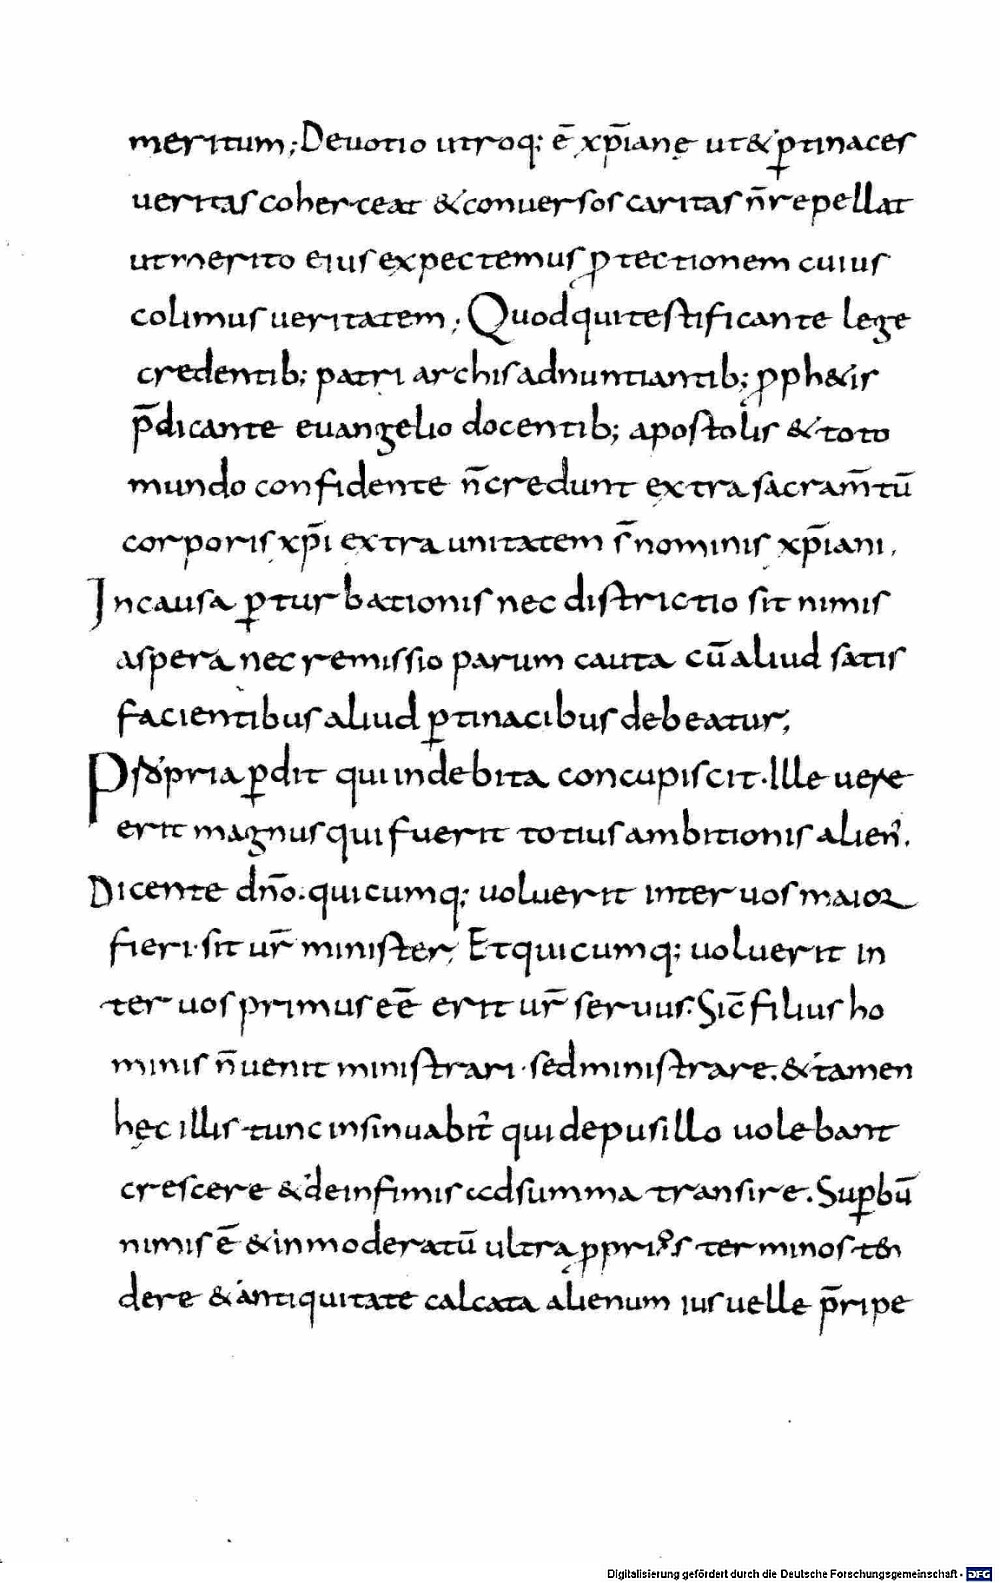 meritum; Deuotio utroq; ē xp̄iane ut & p̱tinaces
ueritas coherceat & conuersos caritas n̄ repellat
ut merito eius expectemus ꝓtectionem cuius
colimus ueritatem; Quod qui testificante lege
credentib; patriarchis adnuntiantib; ꝓph&is
p̄dicante euangelio docentib; apostolis & toto
mundo confidente n̄ credunt extra sacram̄tū
corporis xp̄i extra unitatem s̄ nominis xp̄iani,
In causa ꝑturbationis nec districtio sit nimis
aspera nec remissio parum cauta cū aliud satis
facientibus aliud ꝑtinacibus debeatur;
propria ꝑdit qui indebita concupiscit. Ille uere
erit magnus qui fuerit totius ambitionis alien᾽.
Dicente dn̄o. qui cumq; uoluerit inter uos maior
fieri. sit ur̄ minister, Et qui cumq; uoluerit in
ter uos primus eē erit ur̄ seruus. Sic̄ filius ho
minis n̄ uenit ministrari. sed ministrare. & tamen
hęc illis tunc insinuabit᾽ qui de pusillo uolebant
crescere & de infimis ad summa transire. Suꝑbū
nimis ē & inmoderatū ultra ꝓprios terminos ten
dere & antiquitate calcata alienum ius uelle p̄ripe
Digitalisierung gefördert durch die Deutsche Forschungsgemeinschaft - DFG